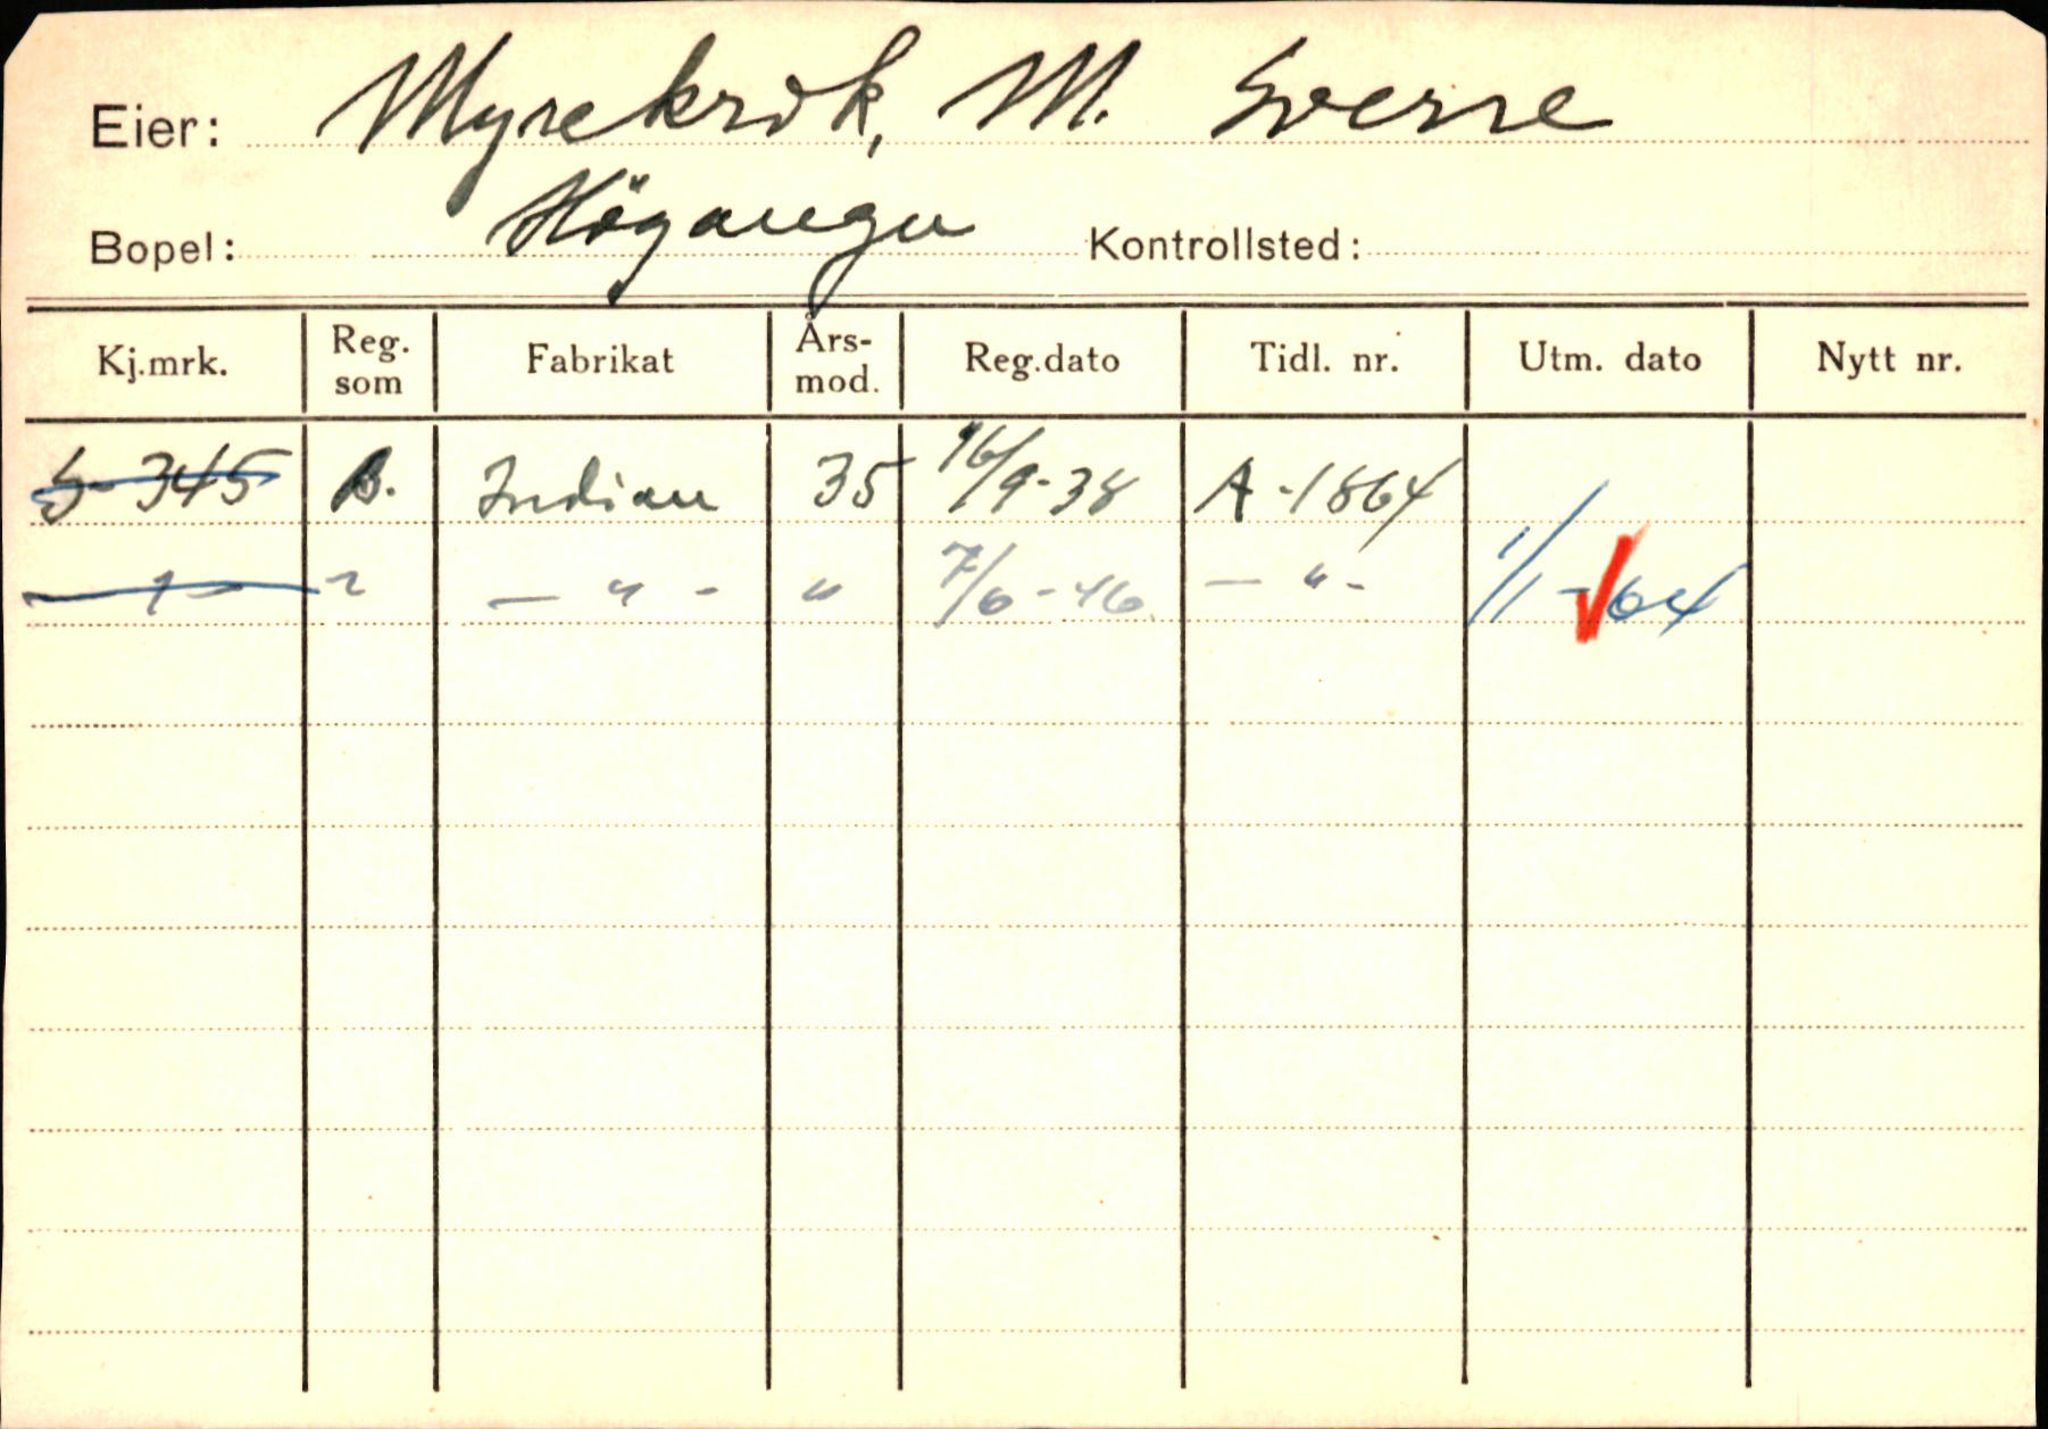 Eier: Myrekrok, M. Sverre
Bopel: Höyangen Kontrollsted:
Kj.mrk. Reg. som Fabrikat Års-mod. Reg.dato Tidl. nr. Utm. dato Nytt nr.
S-345 B. Indian 35 16/9-38 A-1864
— " - " 7/6-46 — " - 1/11-64